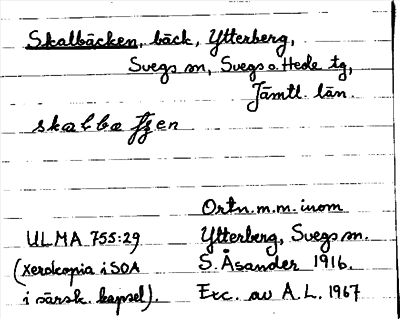 Skalbäcken, bäck, Ytterberg,
Svegs sn, Svegs o. Hede tg,
Jämtl. län.
Ortn. m.m. inom
ULMA 755:29 Ytterberg, Svegs sn.
(xerokopia i SOA S. Åsander 1916.
i särsk. kapsel). Exc. av A.L. 1967